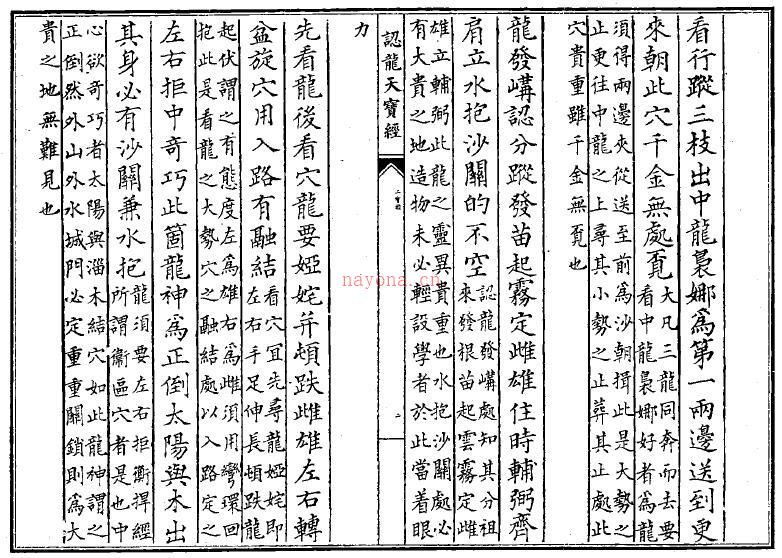 看行蹤三枝出中龍裊娜爲第一兩邊送到更
來朝此穴千金無處覓
大凡三龍同奔而去要
看中龍裊娜好者爲龍
須得兩邊夾從送至前爲沙朝揖此是大勢之
止更往中龍之上尋其小勢之止葬其止處此
穴貴重雖千金無覓也
龍發認分蹤發苗起霧定雌雄住時輔弼齊
肩立水抱沙關的不空
認龍發處知其分祖
來發根苗起雲霧定雌
雄立輔弼此龍之靈異貴重也水抱沙關處必
有大貴之地造物未必輕設學者於此當着眼
力
認龍天寶經
二
先看龍後看穴龍要婭姹并頓跌雌雄左右轉
盆旋穴用入路有融結
看穴冝先尋龍婭姹即
左右手足伸長頓跌龍
起伏謂之有態度左爲雄右爲雌須用彎環回
抱此是看龍之大勢穴之融結處以入路定之
左右拒中奇巧此箇龍神爲正倒太陽與木出
其身必有沙關兼水抱
龍須要左右拒衝捍經
所謂衞區穴者是也中
心欲奇巧者太陽與淄木結穴如此龍神謂之
正倒然外山外水城門必定重重關鎖則爲大
貴之地無難見也
nayona.cn